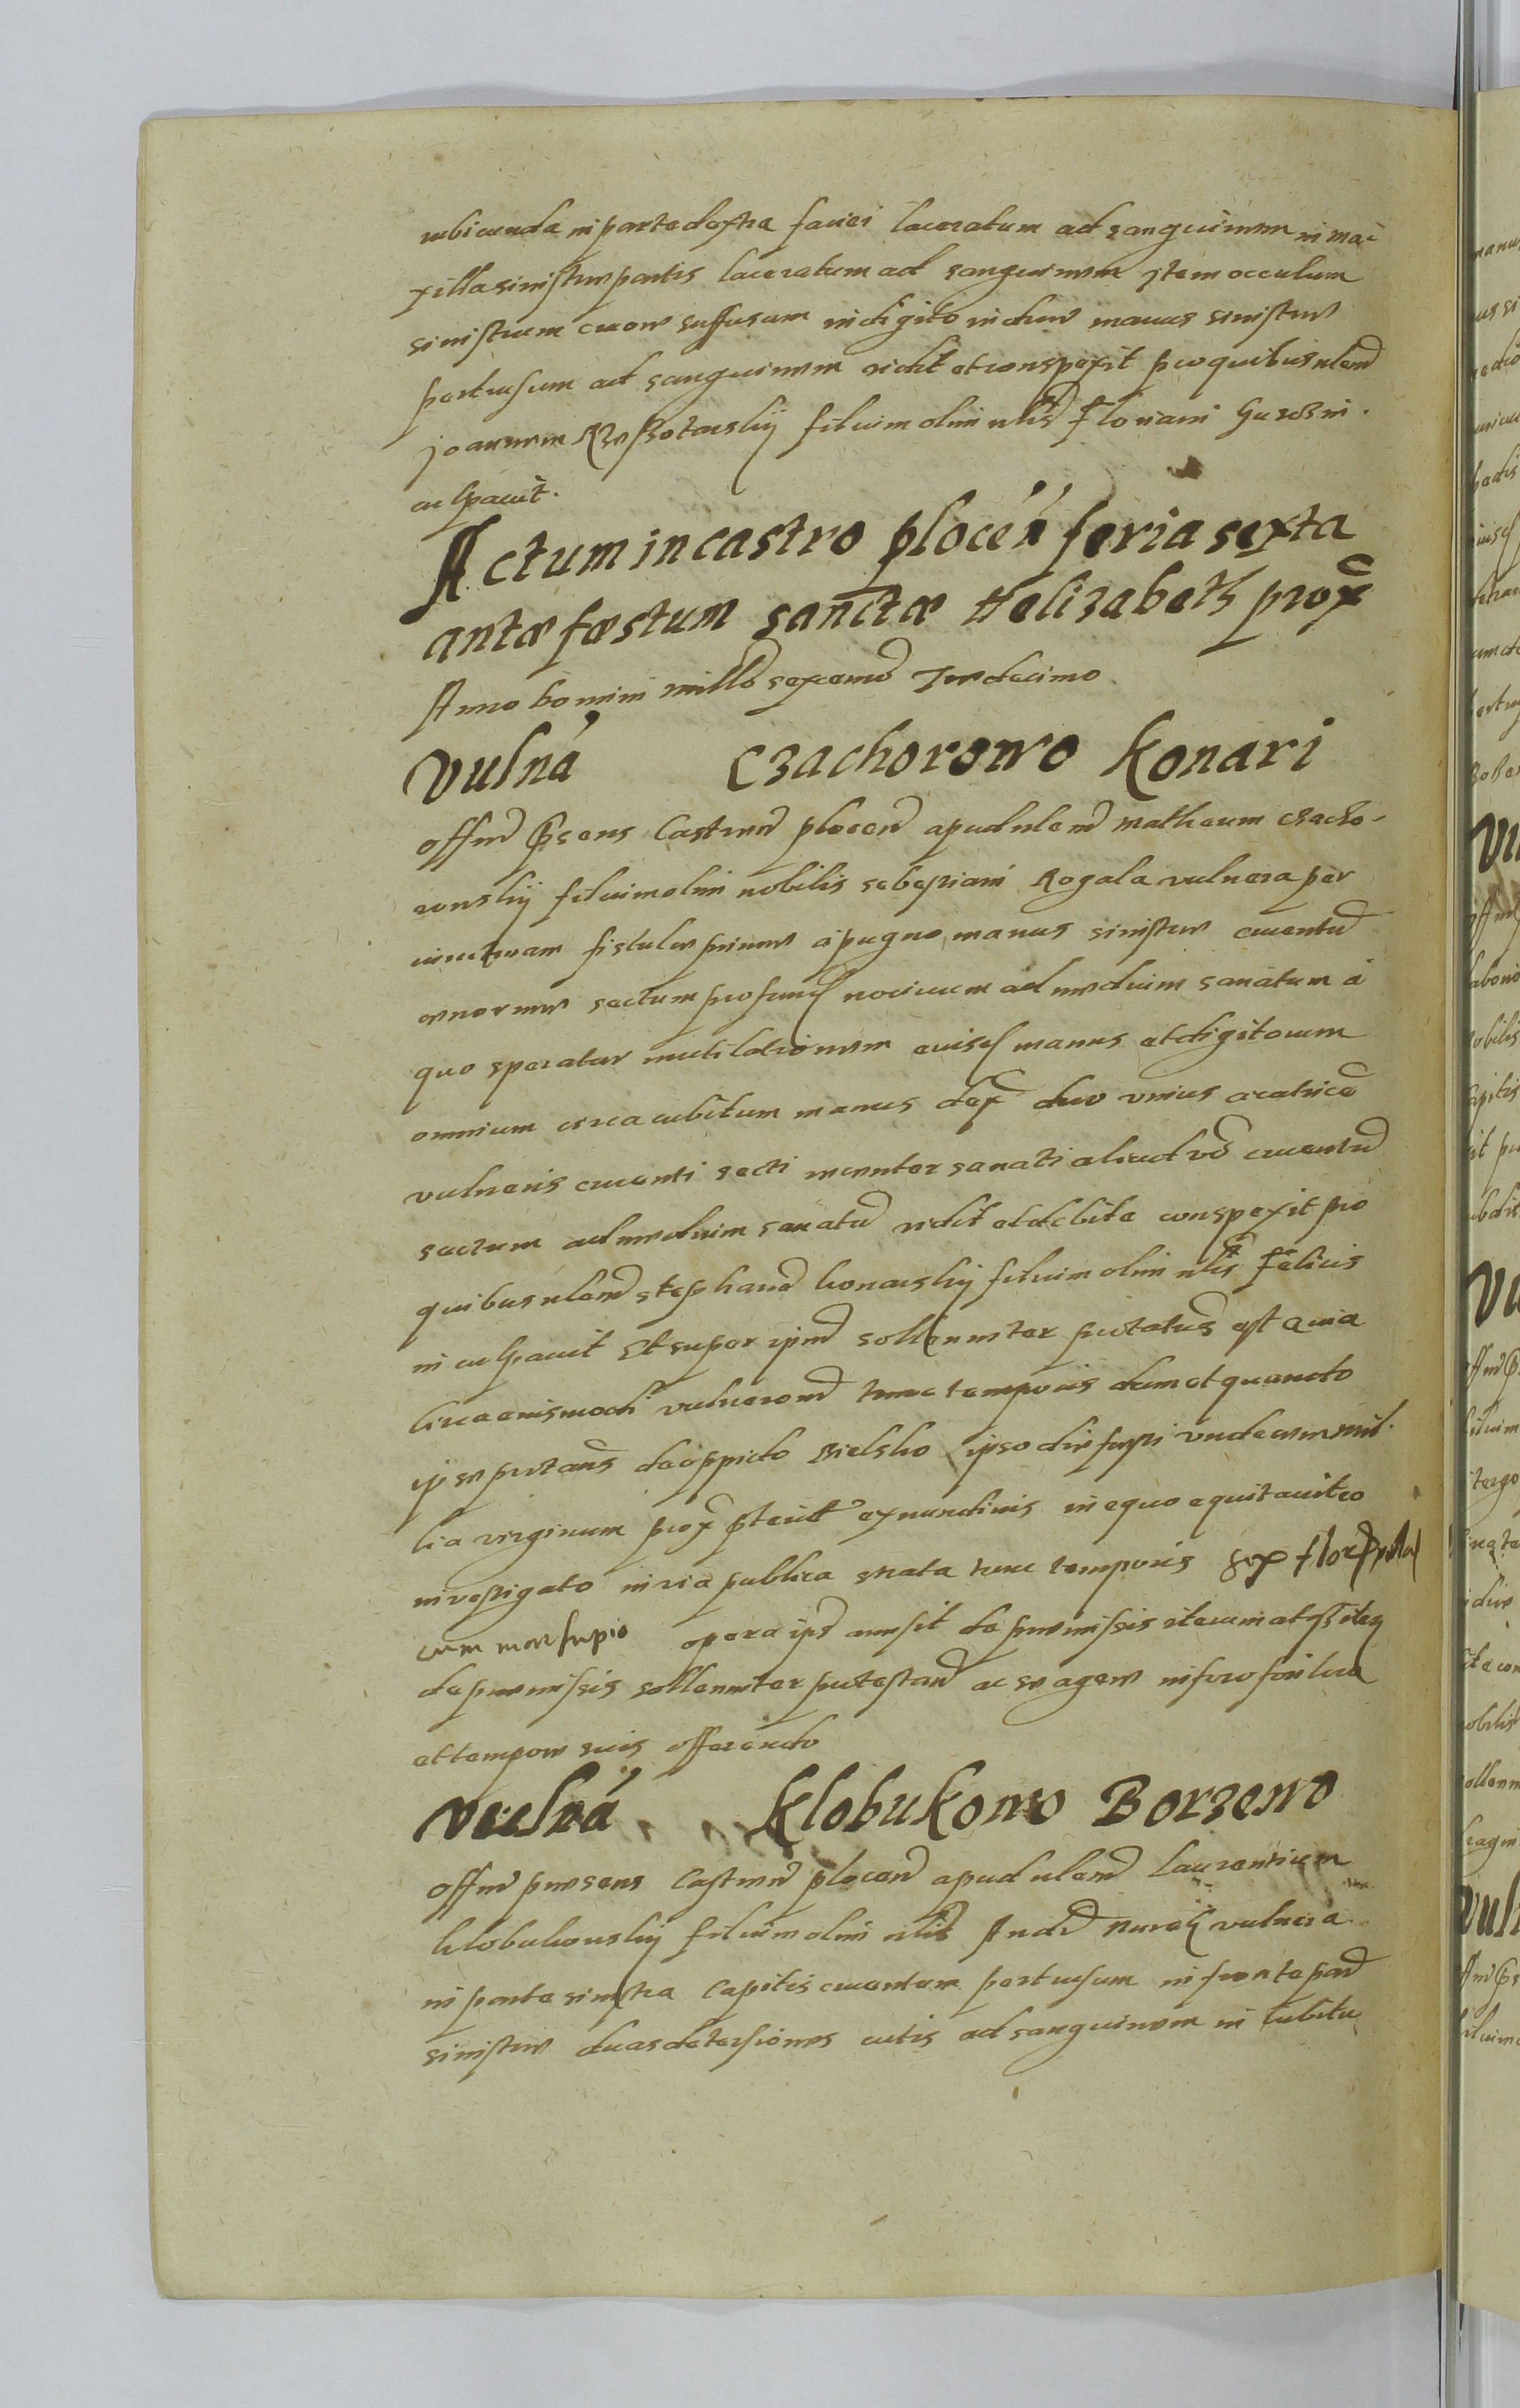 rubicunda in parte dextra faciei laceratum ad sanguinem in ma-
xilla sinistræ partis laceratum ad sanguinem Item occulum
sinistrum cruore suffusum in digito indice manus sinistræ
pertusum ad sanguinem vidit et conspexit pro quibus nlem
Joannem filium olim nlis Floriani
culpavit.
Actum in castro plocen feria sexta
antæ fæstum sanctæ Helizabeth prox
Anno Domini millo sexcmo Tredecimo
Vulna Czachorowo Konari
Offm psens Castren plocen apud nlem Matheum Czacho-
rowskij filium olim nobilis Sebestiani Rogala vulnera per
iuncturam fistulæ primæ a pugno manus sinistræ cruentu
ænorme sectum profund nocivum ad medium sanatum a
quo speratur mutilationem eiusd manus et digitorum
omnium circa cubitum manus dex duo unius cicatrice
vulneris cruenti secti recenter sanati aliud vo cruentu
sectum ad medium sanatu vidit et debite conspexit pro
quibus nlem Stephanu Konarskij filium olim nlis Felicis
in culpavit Et super ipm sollenniter ptotatus est Quia
circa eiusmodi vulneronem tunc temporis dum et quando
ipse ptotans de oppido Bielsko ipso die festi undecim mil-
lia virginum prox pterit ex nundinis in equo equitavit eo
investigato in via publica strata tunc temporis sex flor
cum marsupio opera ips amisit de præmissis iterum atq iterum
de præmissis sollenniter ptotestand ac se agere in foro fori loco
et tempore suis offerendo
Vulna Klobukowo Borzewo
Offm præsens Castren plocen apud nlem Laurentium
Klobukowskij filium olim nlis Andr vulnera
in parte sinistra Capitis cruentum pertusum in fronte part
sinistræ duas detersiones cutis ad sanguinem in cubitu